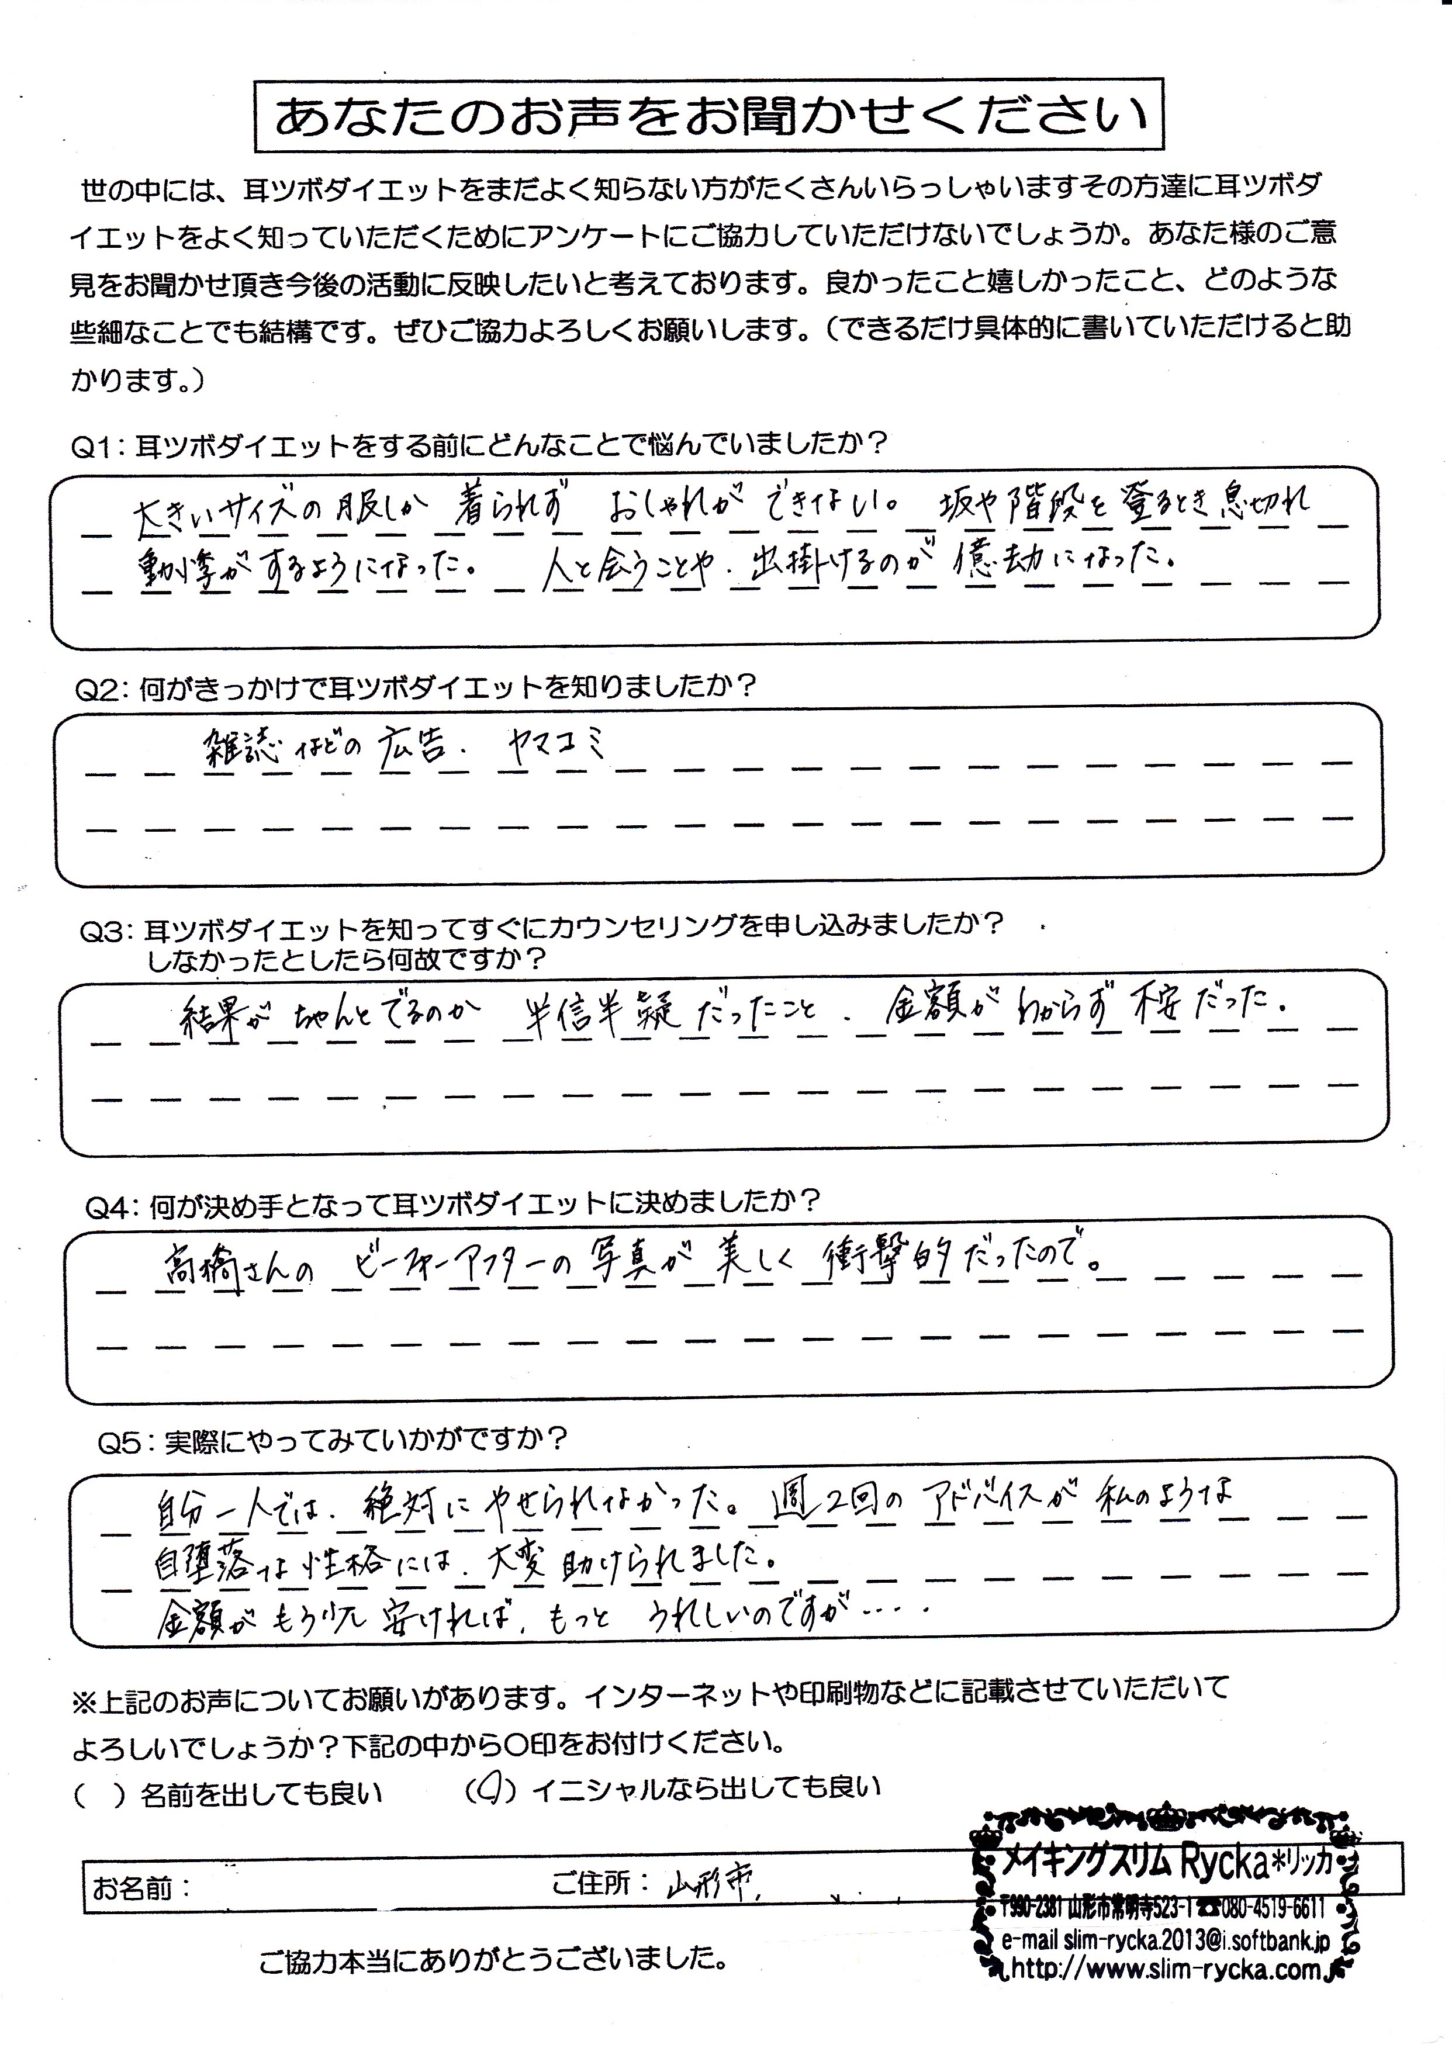 あなたのお声をお聞かせください
世の中には、耳ツボダイエットをまだよく知らない方がたくさんいらっしゃいますその方達に耳ツボダ
イエットをよく知っていただくためにアンケートにご協力していただけないでしょうか。あなた様のご意
見をお聞かせ頂き今後の活動に反映したいと考えております。良かったこと嬉しかったこと、どのような
些細なことでも結構です。ぜひご協力よろしくお願いします。（できるだけ具体的に書いていただけると助
かります。）
Q1：耳ツボダイエットをする前にどんなことで悩んでいましたか？
大きいサイズの服しか 着られず おしゃれが できない。 坂や階段を登るとき息切れ
動悸がするようになった。 人と会うことや、出掛けるのが 億劫になった。
Q2：何がきっかけで耳ツボダイエットを知りましたか？
雑誌などの広告、 ヤマコミ
Q3：耳ツボダイエットを知ってすぐにカウンセリングを申し込みましたか？
しなかったとしたら何故ですか？
結果が ちゃんとでるのか 半信半疑だったこと、 金額が わからず 不安だった。
Q4：何が決め手となって耳ツボダイエットに決めましたか？
高橋さんの ビーフォーアフターの写真が 美しく 衝撃的だったので。
Q5：実際にやってみていかがですか？
自分一人では、絶対に やせられなかった。週2回の アドバイスが 私のような
自堕落な性格には、大変助けられました。
金額が もう少し 安ければ、もっと うれしいのですが‥‥
※上記のお声についてお願いがあります。インターネットや印刷物などに記載させていただいて
よろしいでしょうか？下記の中から〇印をお付けください。
（ ）名前を出しても良い （〇）イニシャルなら出しても良い
お名前： ご住所：山形市
メイキングスリム Rycka＊リッカ
〒990-2381 山形市常明寺523-1☎080-4519-6611
e-mail slim-rycka.2013@i.softbank.jp
http://www.slim-rycka.com
ご協力本当にありがとうございました。